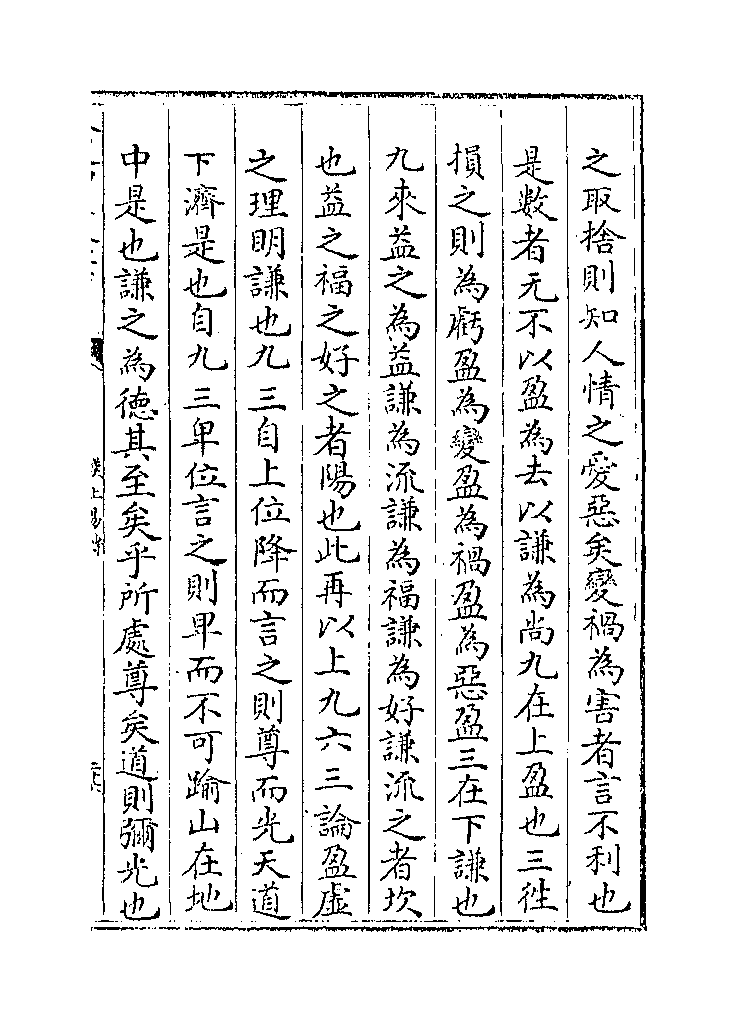 之取捨則知人情之愛惡矣變禍為害者言不利也
是數者无不以盈為去以謙為尚九在上盈也三往
損之則為虧盈為變盈為禍盈為惡盈三在下謙也
九來益之為益謙為流謙為福謙為好謙流之者坎
也益之福之好之者陽也此再以上九六三論盈虛
之理明謙也九三自上位降而言之則尊而光天道
下濟是也自九三卑位言之則卑而不可踰山在地
中是也謙之為德其至矣乎所處尊矣道則彌光也